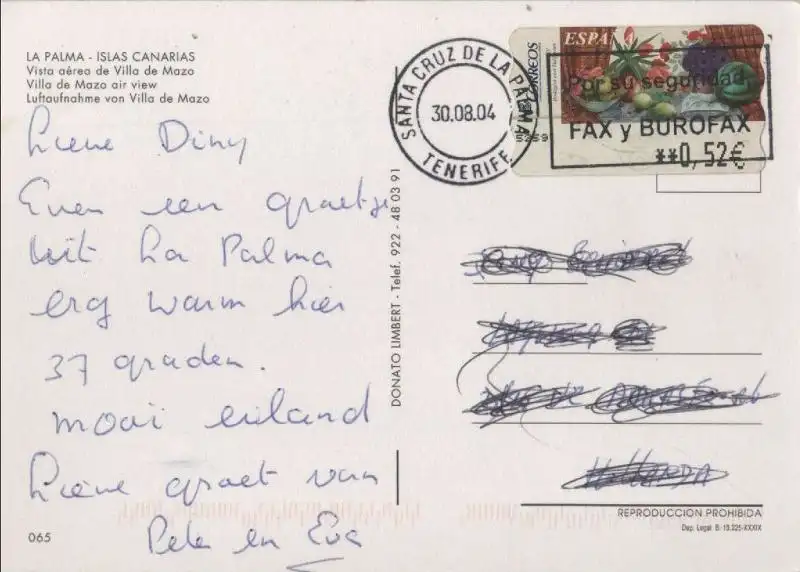 LA PALMA - ISLAS CANARIAS
Vista aérea de Villa de Mazo
Villa de Mazo air view
Luftaufnahme von Villa de Mazo
Lieve Diny
Even een groetje
uit La Palma
erg warm hier
37 graden.
mooi eiland
Lieve groet van
Pele en Eva
065
DONATO LIMBERT - Telef. 922 - 48 03 91
SANTA CRUZ DE LA PALMA
30.08.04
TENERIFE
ESPAÑA
CORREOS
Por su seguridad,
FAX y BUROFAX
**0,52€
REPRODUCCION PROHIBIDA
Dep. Legal B: 13.325-XXXIX